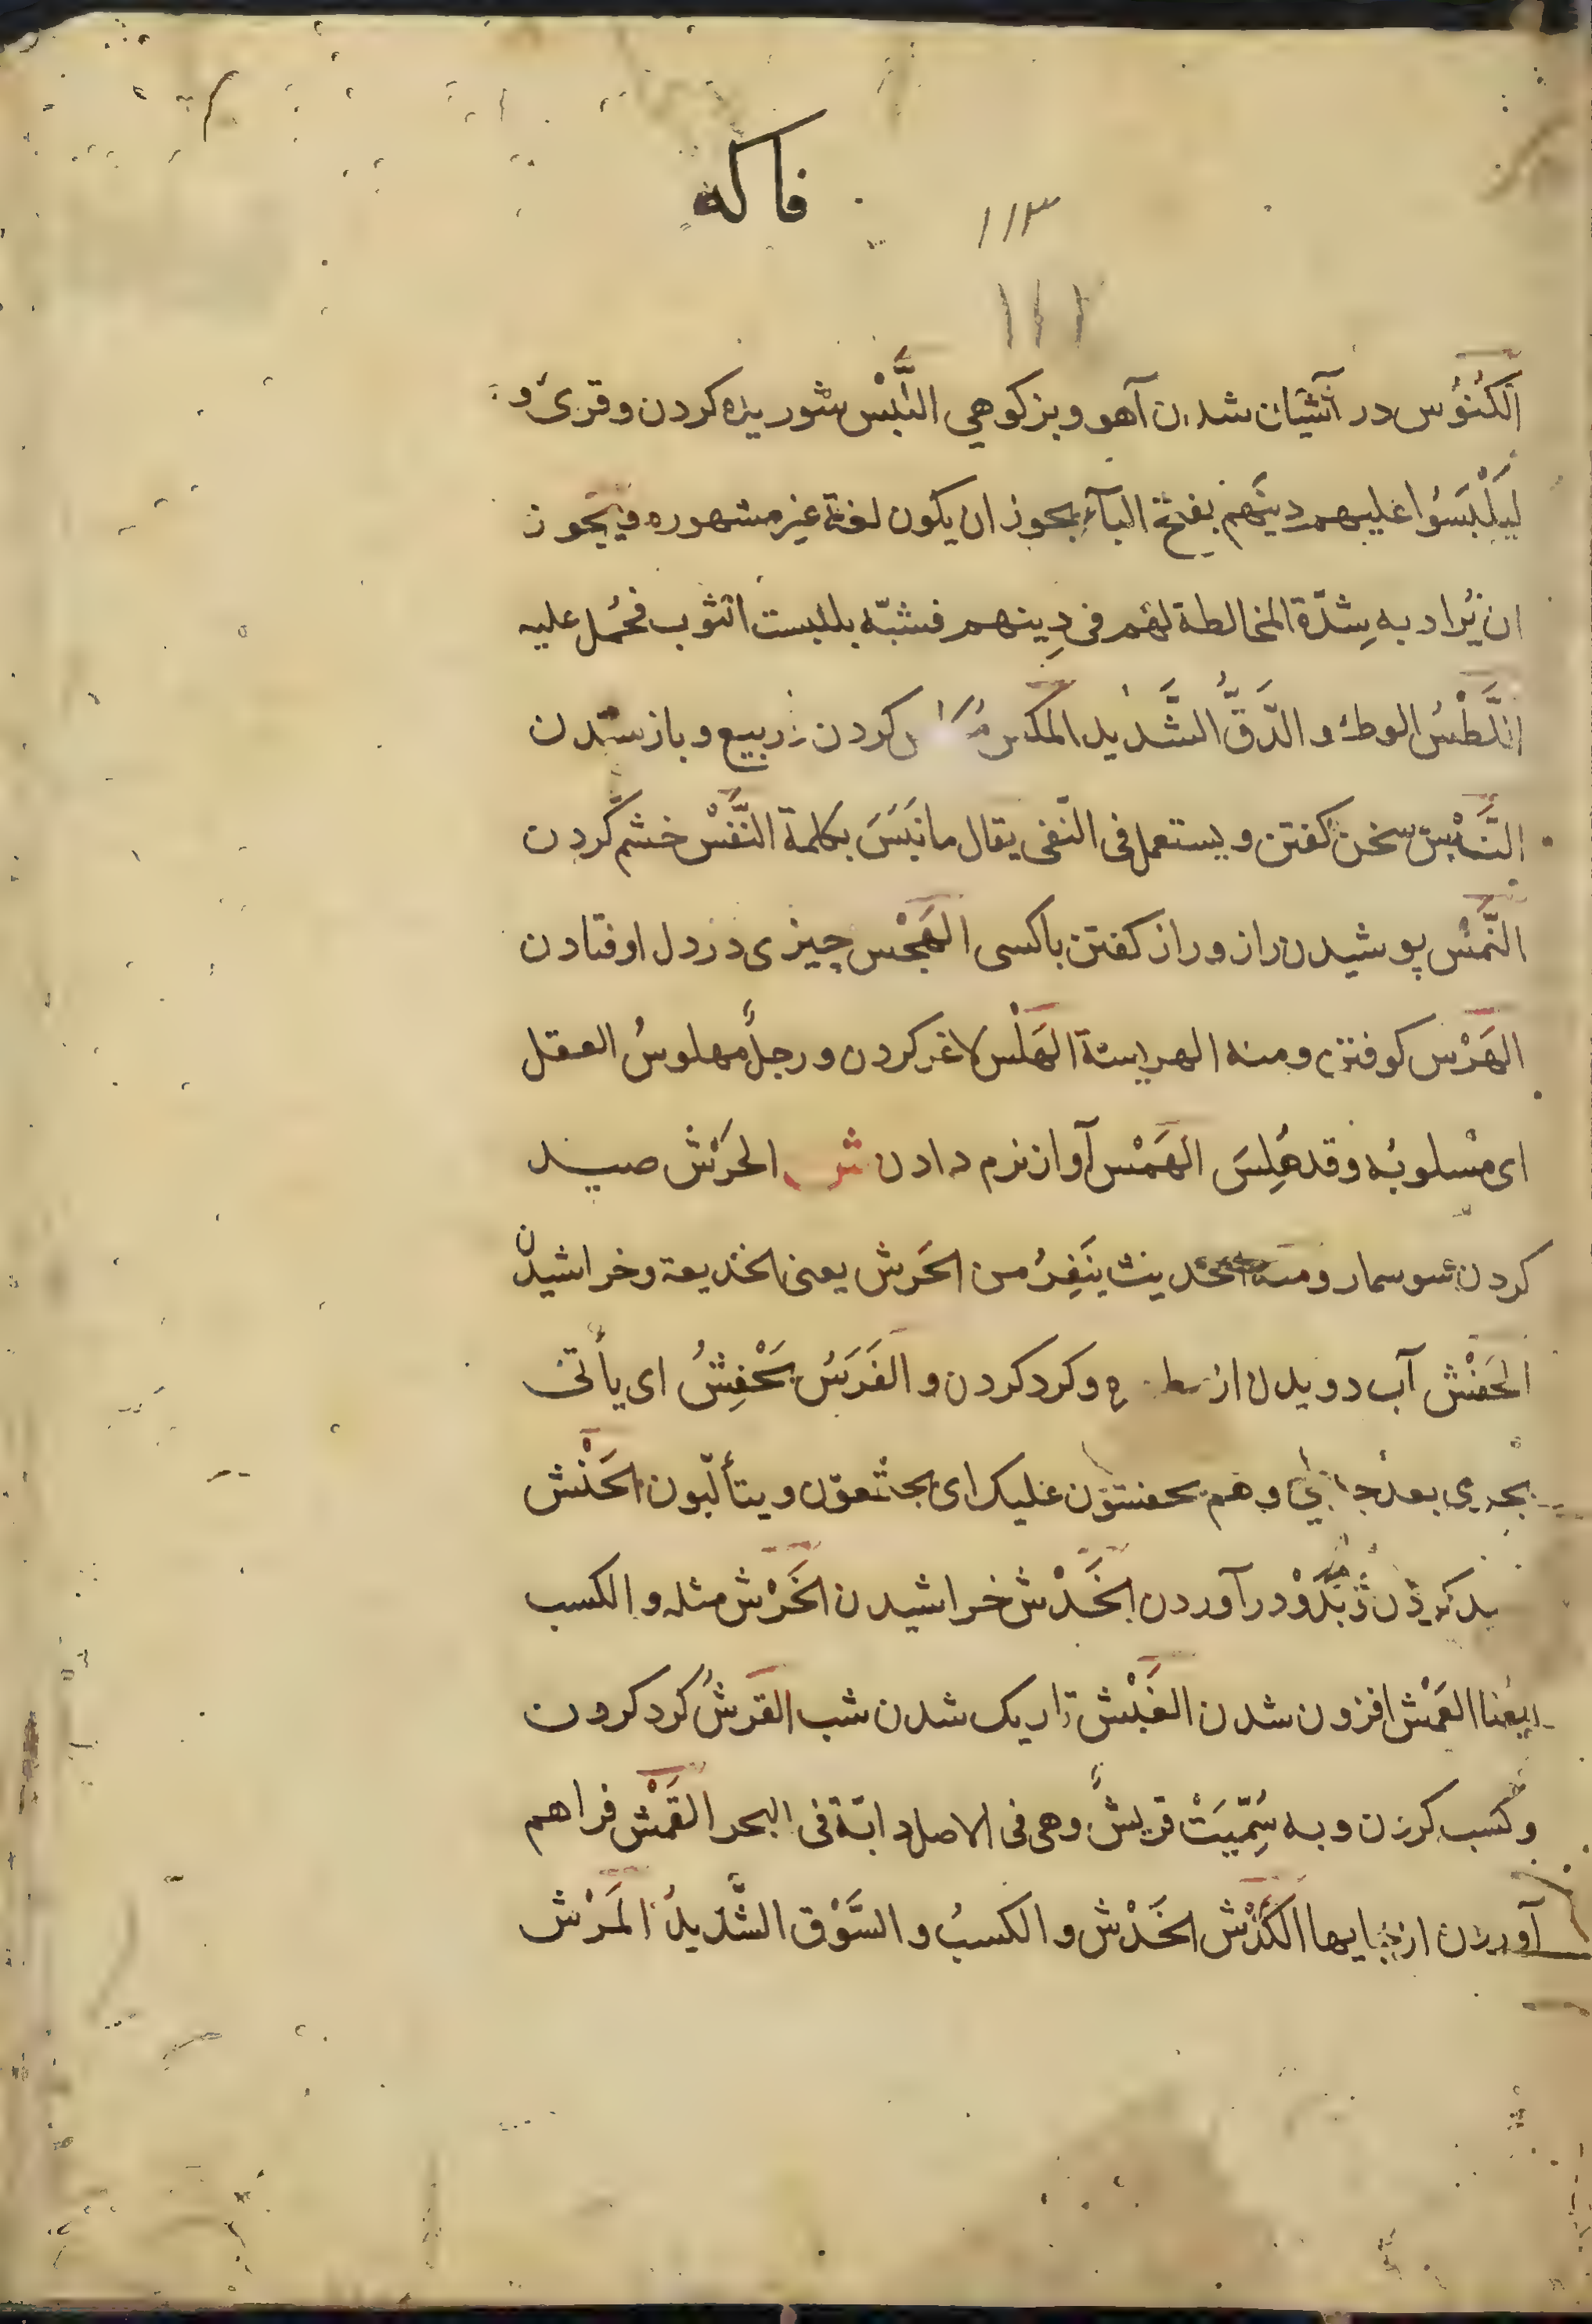 فاكه
١١٣
١١٢
الكُنُوُس در آشیان شدن آهو و بزكوهي اللَّبْسُ شوريده كردن و قرئ و
لِيَلْبَسُوا عليهم دينَهم بفتح البآء يجوز ان يكون لغة غير مشهوره و يجوز
ان يُراد به شِدّة المخالطة لهم فى دِينهم فشبّه بلبست الثوب فحُمل عليه
اللَّطْسُ الوطئ و الدَّقُّ الشَّديد المكس كردن در بيع و باز ستدن
النَّبْسُ سخن گفتن و يستعمل فى النّفى يقال ما نَبَسَ بكلمة النَّفْسْ خشم كردن
النَّمْسُ پوشيدن راز و راز گفتن با كسى الهَجْس چيزى در دل اوفتادن
الهَرْس كوفتن و منه الهريسة الهَلْس لاغر كردن و رجلٌ مهلوسُ العقل
اى مسلوبُه و قد هُلِسَ الهَمْس آواز نرم دادن ش الحَرْش صيد
كردن سوسمار و منه الحديث يَنفِرُ من الحَرش يعنى الخديعة و خراشيدن
الحَفْش آب دويدن از و گرد كردن و الفَرَسُ يَحْفِشُ اى يأتى
بجرى بعد و هم يحفشون عليك اى يجتمعون و يتألّبون الحَنْش
در آوردن الخَدْش خراشيدن الخَرْش مثله و الكسب
ايضا العَمْش افزون شدن الغَبْش تاريك شدن شب القَرشُ گرد كردن
و كسب كردن و به سُمّيَتْ قريشٌ و هى فى الاصل دابّة فى البحر القَمْش فراهم
آوردن از الكَدْش الخَدْش و الكسبُ و السَّوْق الشَّديدُ المَرْش